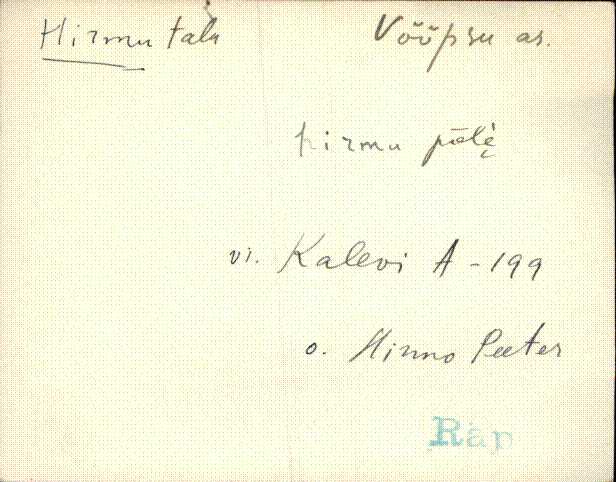 Hirmu talu Võõpsu as.
hirmu pōlè̬
vi. Kalevi A-199
o. Hinno Peeter
Räp